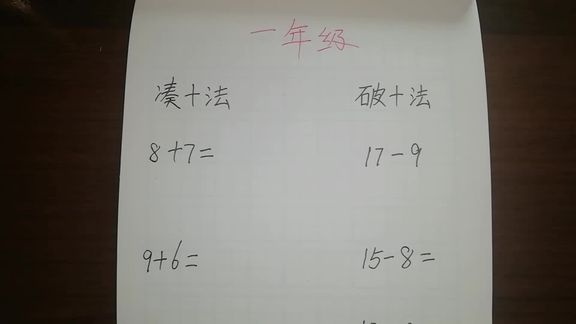 一年级
凑十法 破十法
8+7= 17-9
9+6= 15-8=